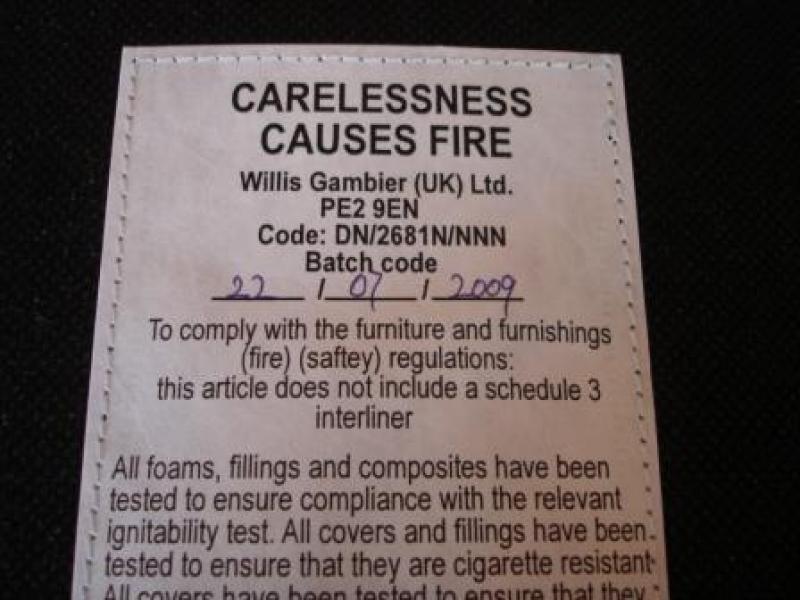 CARELESSNESS
CAUSES FIRE
Willis Gambier (UK) Ltd.
PE2 9EN
Code: DN/2681N/NNN
Batch code
22 / 07 / 2009
To comply with the furniture and furnishings
(fire) (saftey) regulations:
this article does not include a schedule 3
interliner
All foams, fillings and composites have been
tested to ensure compliance with the relevant
ignitability test. All covers and fillings have been
tested to ensure that they are cigarette resistant
All covers have been tested to ensure that they